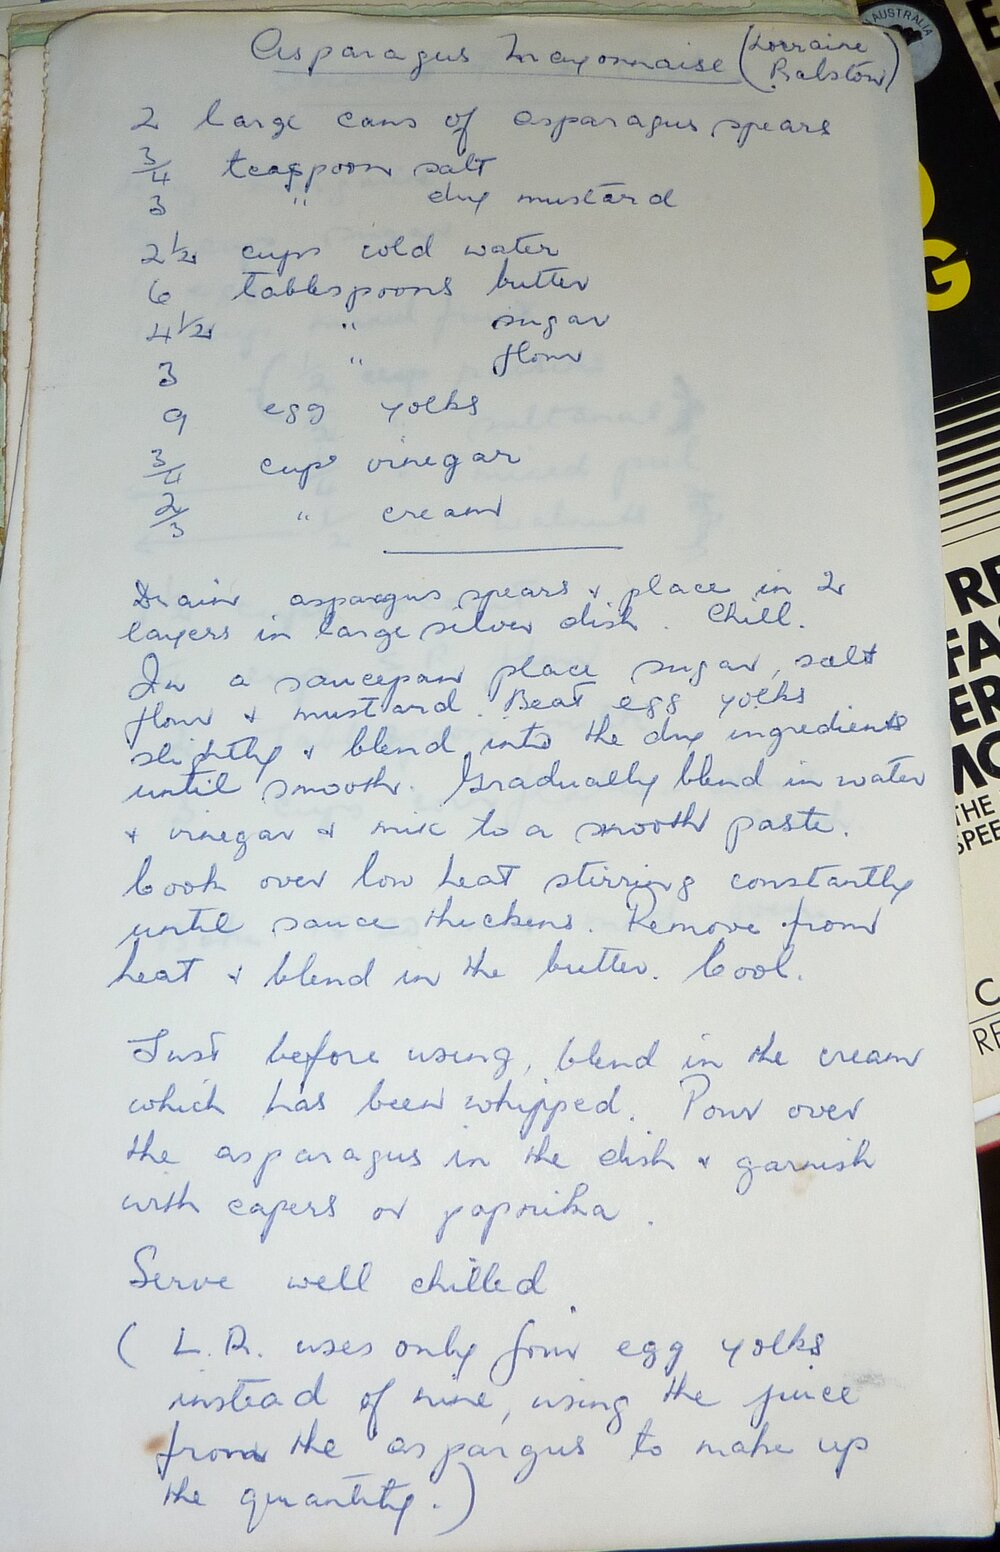 Asparagus Mayonnaise (Lorraine Ralston)
2 large cans of asparagus spears
3/4 teaspoon salt
3 " dry mustard
2 1/2 cups cold water
6 tablespoons butter
4 1/2 " sugar
3 " flour
9 egg yolks
3/4 cups vinegar
2/3 " cream
Drain asparagus spears & place in 2
layers in large silver dish. Chill.
In a saucepan place sugar, salt
flour & mustard. Beat egg yolks
slightly & blend into the dry ingredients
until smooth. Gradually blend in water
& vinegar & mix to a smooth paste.
Cook over low heat stirring constantly
until sauce thickens. Remove from
heat & blend in the butter. Cool.
Just before using, blend in the cream
which has been whipped. Pour over
the asparagus in the dish & garnish
with capers or paprika.
Serve well chilled.
( L.R. uses only four egg yolks
instead of nine, using the juice
from the aspargus to make up
the quantity.)
AUSTRALIA
G
RE
FA
ER
MO
THE
SPEE
C
RE